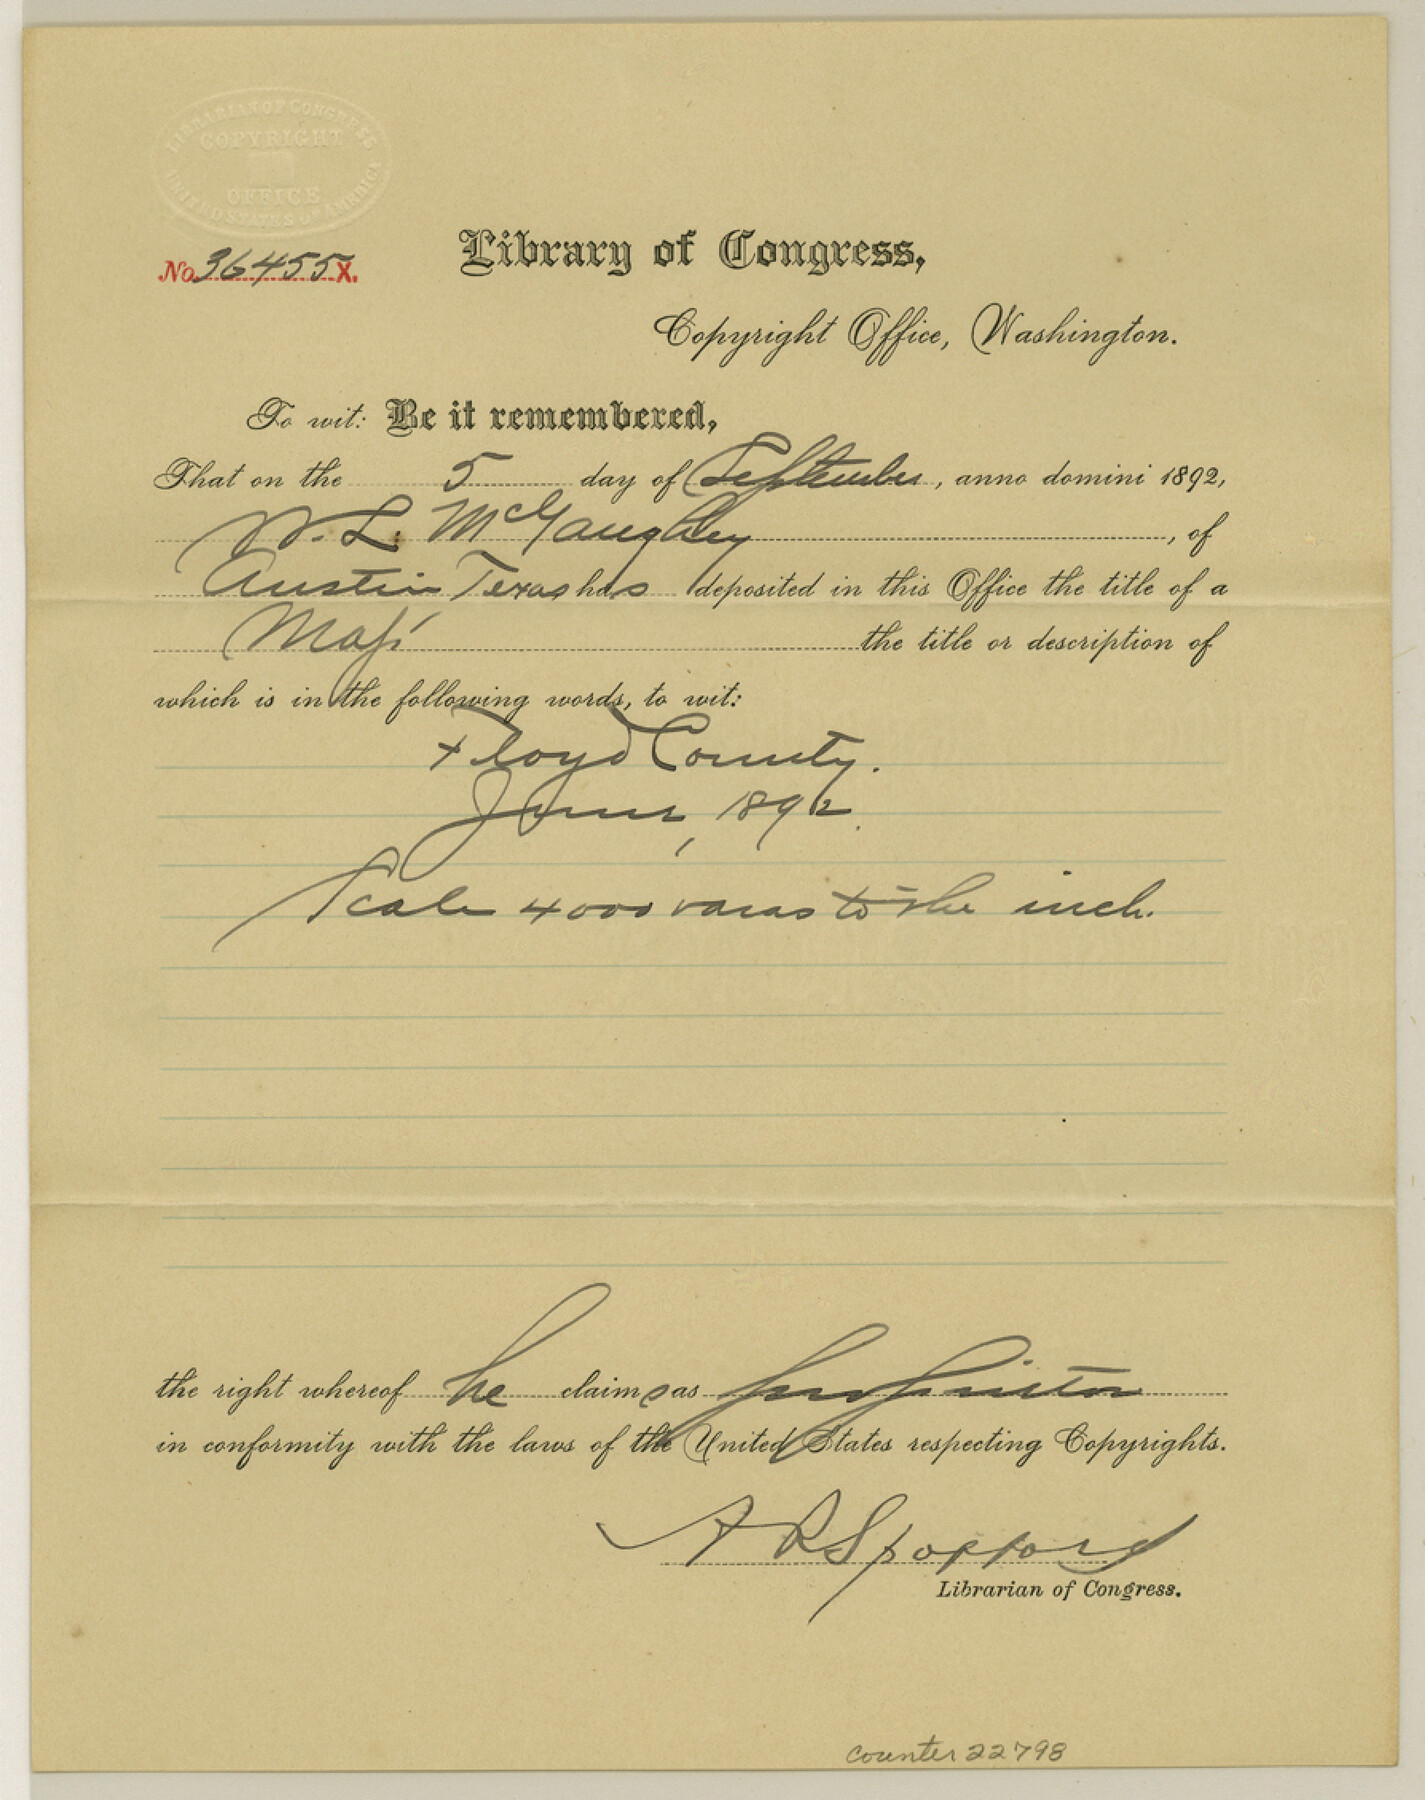 LIBRARIAN OF CONGRESS
COPYRIGHT
OFFICE
UNITED STATES OF AMERICA
No. 36455 X.
Library of Congress,
Copyright Office, Washington.
To wit: Be it remembered,
That on the 5 day of September, anno domini 1892,
W. L. McGaughey, of
Austin Texas has deposited in this Office the title of a
Map the title or description of
which is in the following words, to wit:
Floyd County.
June, 1892.
Scale 4000 varas to the inch.
the right whereof he claims as proprietor
in conformity with the laws of the United States respecting Copyrights.
A R Spofford
Librarian of Congress.
counter 22798